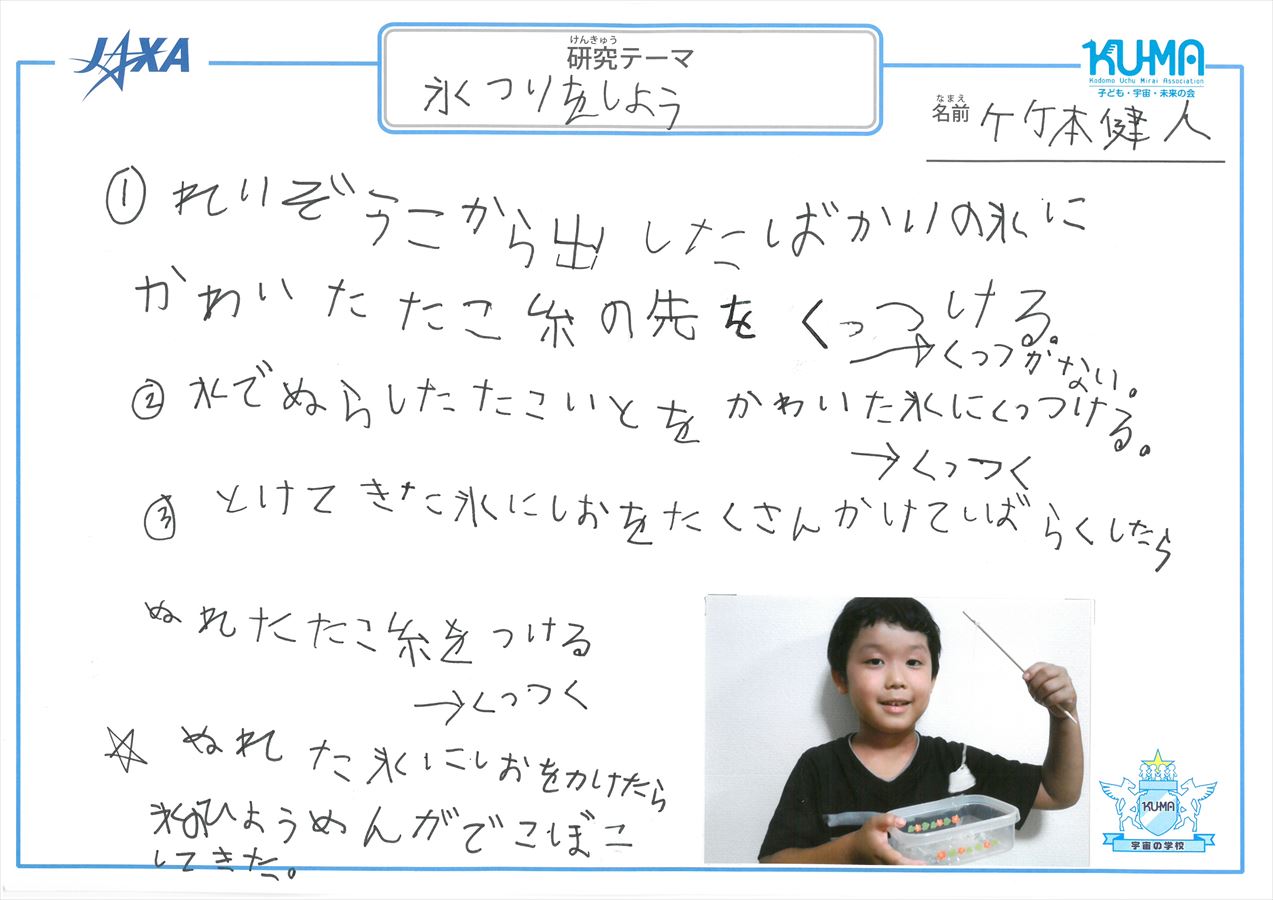 JAXA
けんきゅう
研究テーマ
氷つりをしよう
KU-MA
Kodomo Uchu Mirai Association
子ども・宇宙・未来の会
なまえ
名前 竹本健人
① れいぞうこから出したばかりの氷に
かわいたたこ糸の先をくっつける。
→くっつかない。
② 水でぬらしたたこいとをかわいた氷にくっつける。
→くっつく
③ とけてきた氷にしおをたくさんかけてしばらくしたら
ぬれたたこ糸をつける
→くっつく
☆ ぬれた氷にしおをかけたら
氷のひょうめんがでこぼこ
してきた。
KU-MA
宇宙の学校